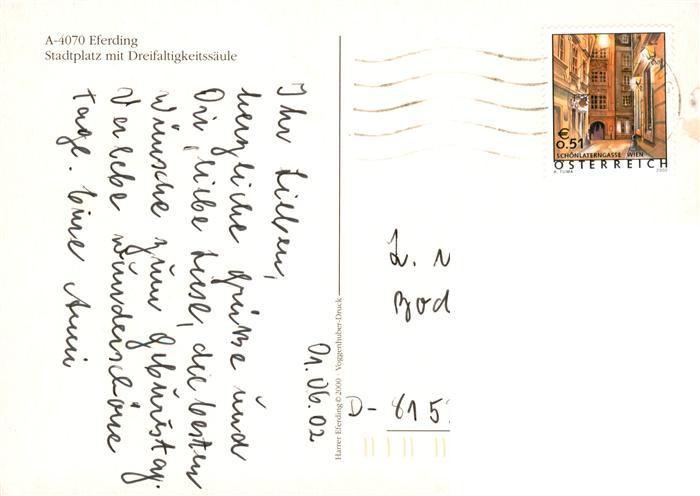 A-4070 Eferding
Stadtplatz mit Dreifaltigkeitssäule
Ihr Lieben,
herzliche Grüße und
Dir, liebe Liese, die besten
Wünsche zum Geburtstag.
Verlebe wunderschöne
Tage. Eure Anni
01.06.02
Harrer Eferding © 2000 · Voggenhuber-Druck
€
0.51
SCHÖNLATERNGASSE WIEN
ÖSTERREICH
A. TUMA 2002
L. n
Bod
D- 815